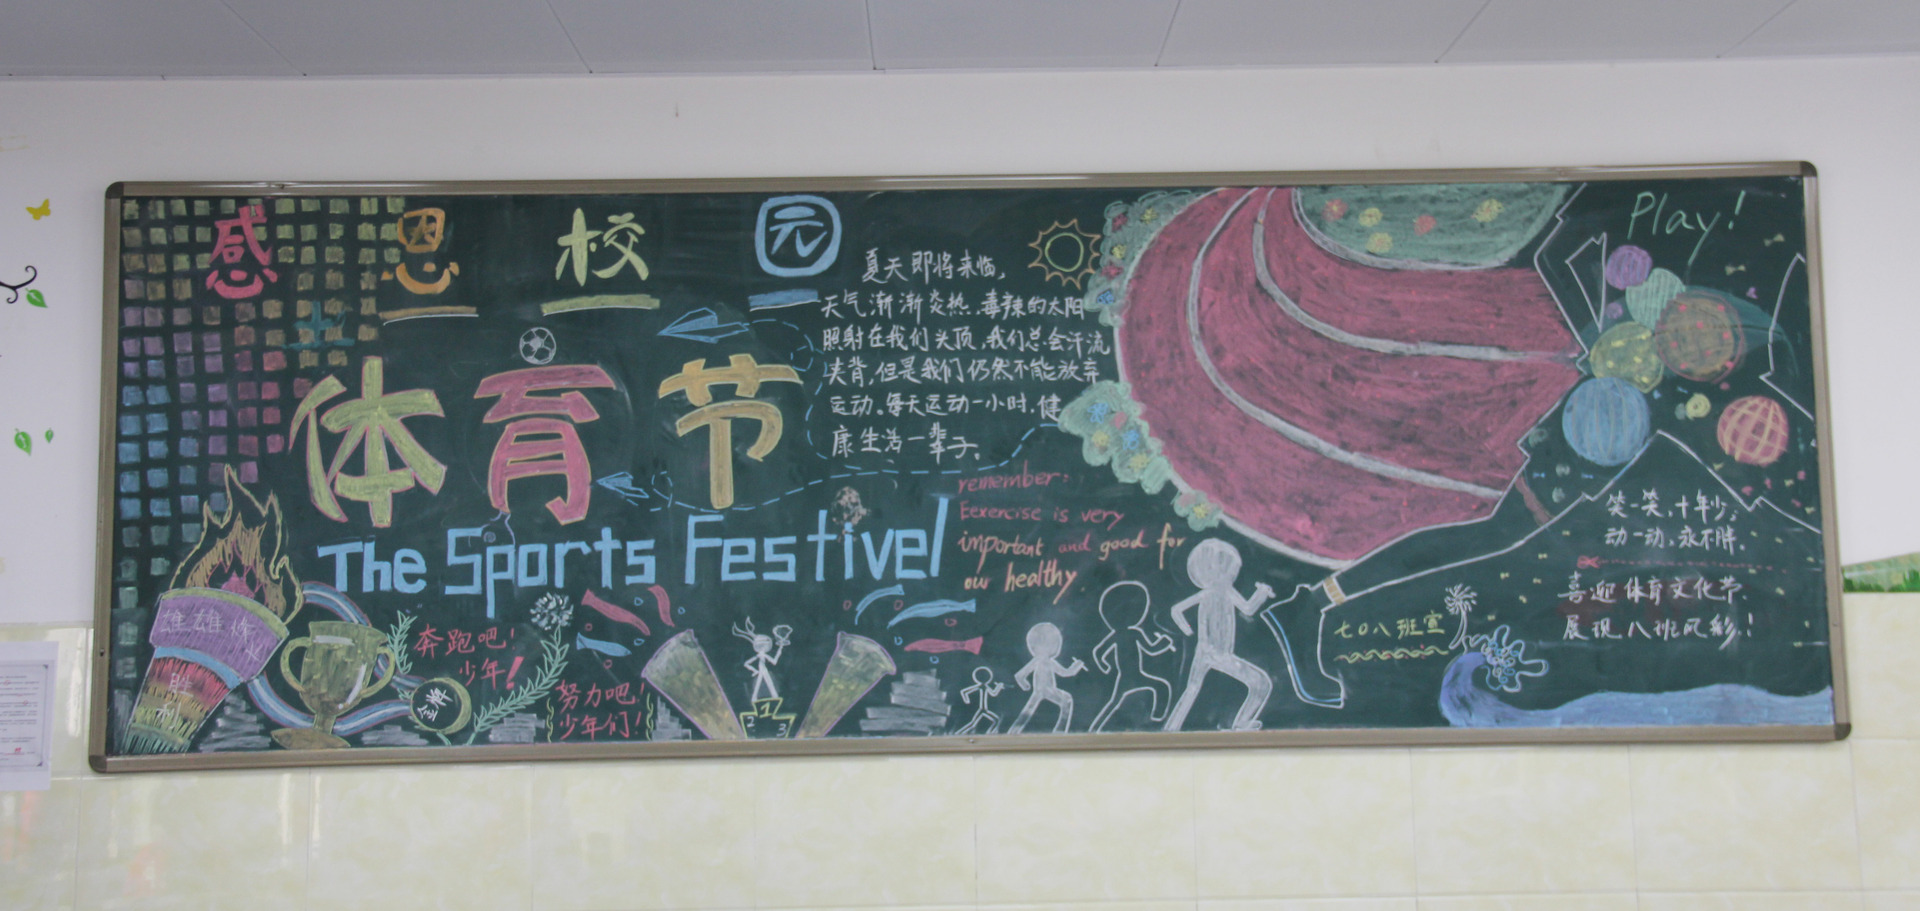 感恩校园
体育节
The Sports Festivel
夏天即将来临,
天气渐渐炎热,毒辣的太阳
照射在我们头顶,我们总会汗流
夹背,但是我们仍然不能放弃
运动。每天运动一小时,健
康生活一辈子。
remember:
Eexercise is very
important and good for
our healthy.
Play!
笑一笑,十年少;
动一动,永不胖.
喜迎体育文化节.
展现八班风彩!
七〇八班宣
雄雄烁
胜
奔跑吧!
少年!
金牌
努力吧!
少年们!
1
2
3